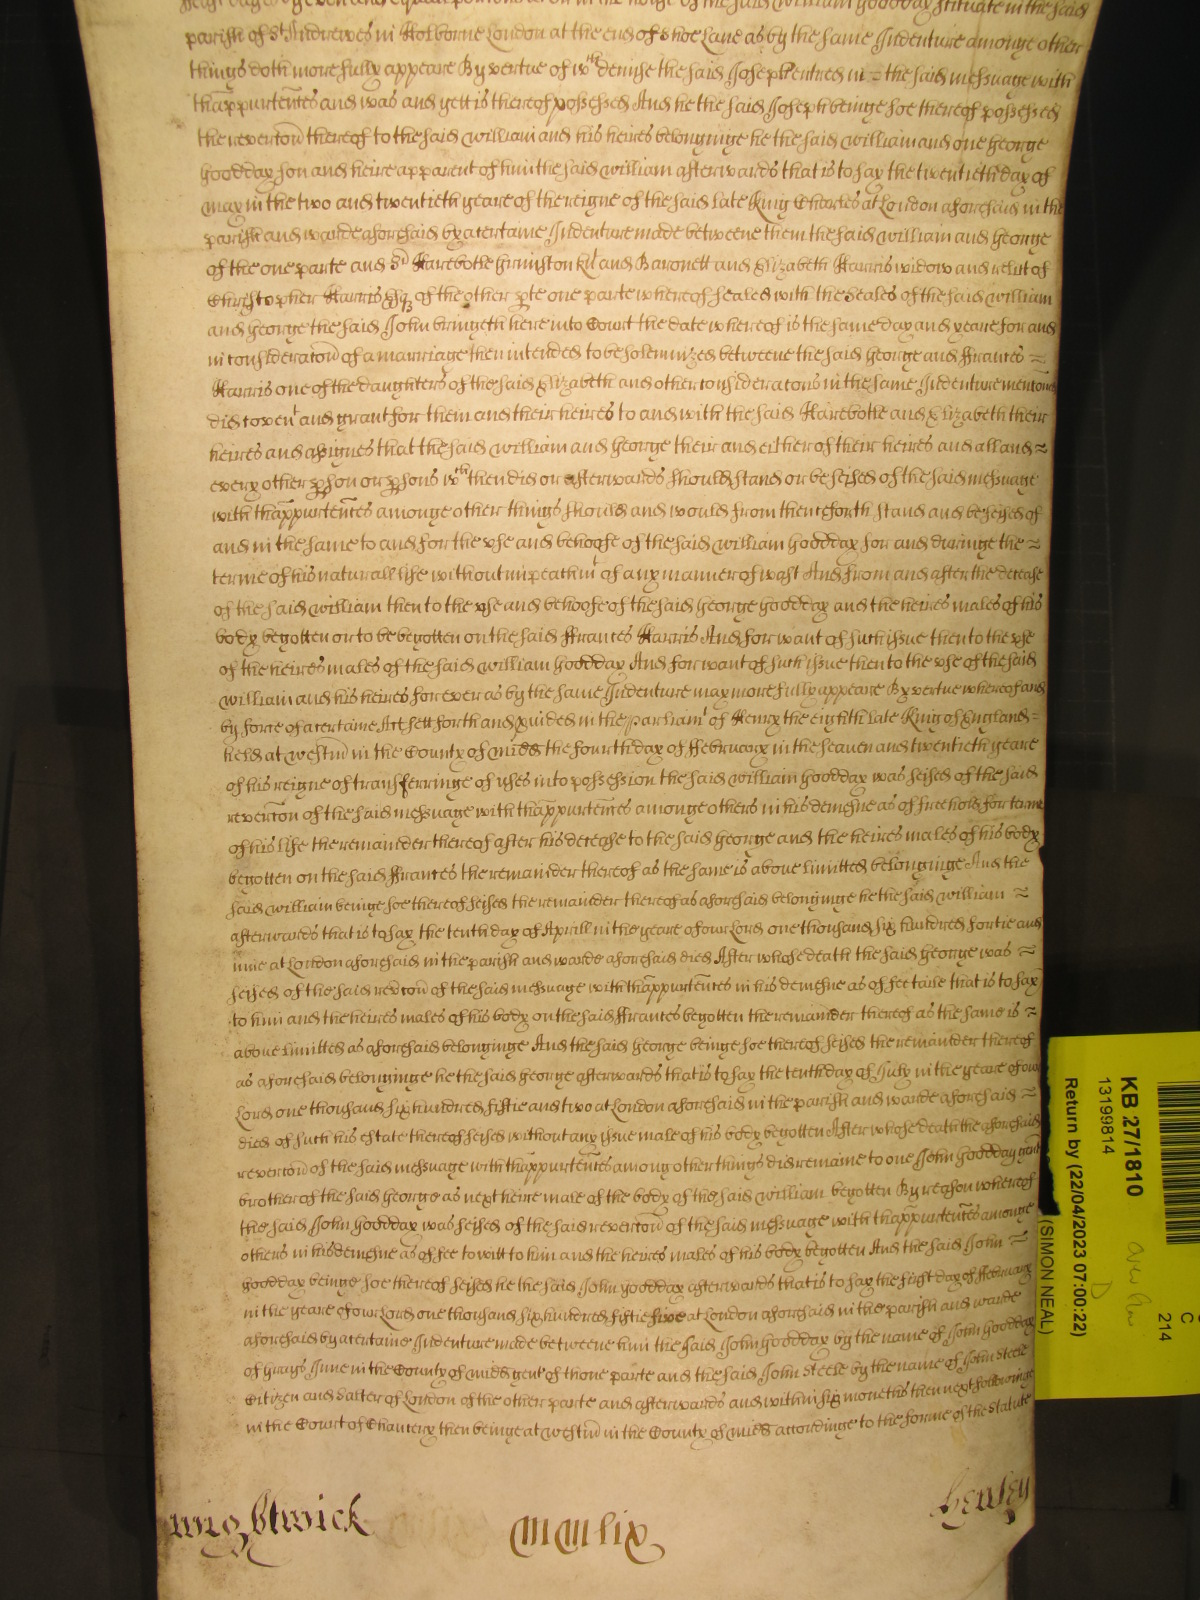 of the said William Goodday scituate in the said
parish of St Andrewes in Holborne London at the end of shoe Lane as by the same Indenture amonge other
things doth more fully appeare By vertue of wch demise the said Joseph entred in = the said messuage with
thappurtenńces and was and yett is thereof possessed And he the said Joseph beinge soe thereof possessed
the reverc̃on thereof to the said William and his heires belonginge he the said William and one George
Goodday son and heire apparent of him the said William afterwards that is to say the twentieth day of
May in the two and twentieth yeare of the reigne of the said late King Charles at London aforesaid in the
parish and warde aforesaid by a certaine Indenture made betweene them the said William and George
of the one parte and Sr Harebotle Grimston Kt and Baronett and Elizabeth Harris widow and relict of
Christopher Harris Esq of the other pte one parte whereof sealed with the Seales of the said William
and George the said John bringeth here into Court the date whereof is the same day and yeare for and
in consideratõn of a marriage then intended to be solemnized betweene the said George and Frances =
Harris one of the daughters of the said Elizabeth and other consideratons in the same Indenture menc̃oned
did coven^t and grant for them and their heires to and with the said Harebotle and Elizabeth their
heires and assignes that the said William and George their and either of their heires and all and =
every other pson or psons wch then did or afterwards should stand or be seised of the said messuage
with thappurtenñces amonge other things should and would from thenceforth stand and be seised of
and in the same to and for the use and behoofe of the said William Goodday for and duringe the =
terme of his naturall life without impeachmt of any manner of wast And from and after the decease
of the said William then to the use and behoofe of the said George Goodday and the heires males of his
body begotten or to be begotten on the said Frances Harris And for want of such issue then to the use
of the heires males of the said William Goodday And for want of such issue then to the use of the said
William and his heires for ever as by the same Indenture may more fully appeare By vertue whereof and
by force of a certaine Act sett forth and pvided in the parliamt of Henry the eighth late King of England =
held at Westm̃ in the County of Midd the fourth day of February in the seaven and twentieth yeare
of his reigne of transferringe of uses into possession the said William Goodday was seised of the said
reverc̃on of the said messuage with thappurtenñces amonge others in his demesne as of freehold for terme
of his life the remainder thereof after his decease to the said George and the heires males of his body
begotten on the said Frances the remainder thereof as the same is above limitted belonginge And the
said William beinge soe thereof seised the remainder thereof as aforesaid belonginge he the said William =
afterwards that is to say the tenth day of Aprill in the yeare of our Lord one thousand six hundred fortie and
nine at London aforesaid in the parish and warde aforesaid died After whose death the said George was =
seised of the said reverc̃on of the said messuage with thappurtenñces in his demesne as of fee taile that is to say
to him and the heires males of his body on the said Frances begotten the remainder thereof as the same is =
above limitted as aforesaid belonginge And the said George beinge soe thereof seised the remainder thereof
as aforesaid belonginge he the said George afterwards that is to say the tenth day of July in the yeare of our
Lord one thousand six hundred fiftie and two at London aforesaid in the parish and warde aforesaid =
died of such his estate thereof seised without any issue male of his body begotten After whose death the aforesaid
reverc̃on of the said messuage with thappurtenñces among other things did remaine to one John Goodday gent
brother of the said George as next heire male of the body of the said William begotten By reason whereof
the said John Goodday was seised of the said reverc̃on of the said messuage with thappurtenñces amonge
others in his demesne as of fee to witt to him and the heires males of his body begotten And the said John =
Goodday beinge soe thereof seised he the said John Goodday afterwards that is to say the first day of February
in the yeare of our Lord one thousand six hundred fiftie five at London aforesaid in the parish and warde
aforesaid by a certaine Indenture made betweene him the said John Goodday by the name of John Goodday
of Grays Inne in the County of Midd gent of thone parte and the said John Steele by the name of John Steele
Citizen and Salter of London of the other parte and afterwards and within six moneths then next followinge
in the Court of Chancery then beinge at Westm̃ in the County of Midd accordinge to the forme of the Statute
Wightwick
MMMlix
Henley
KB 27/1810
13199814
Return by (22/04/2023 07:00:22)
(SIMON NEAL)
C
214
D